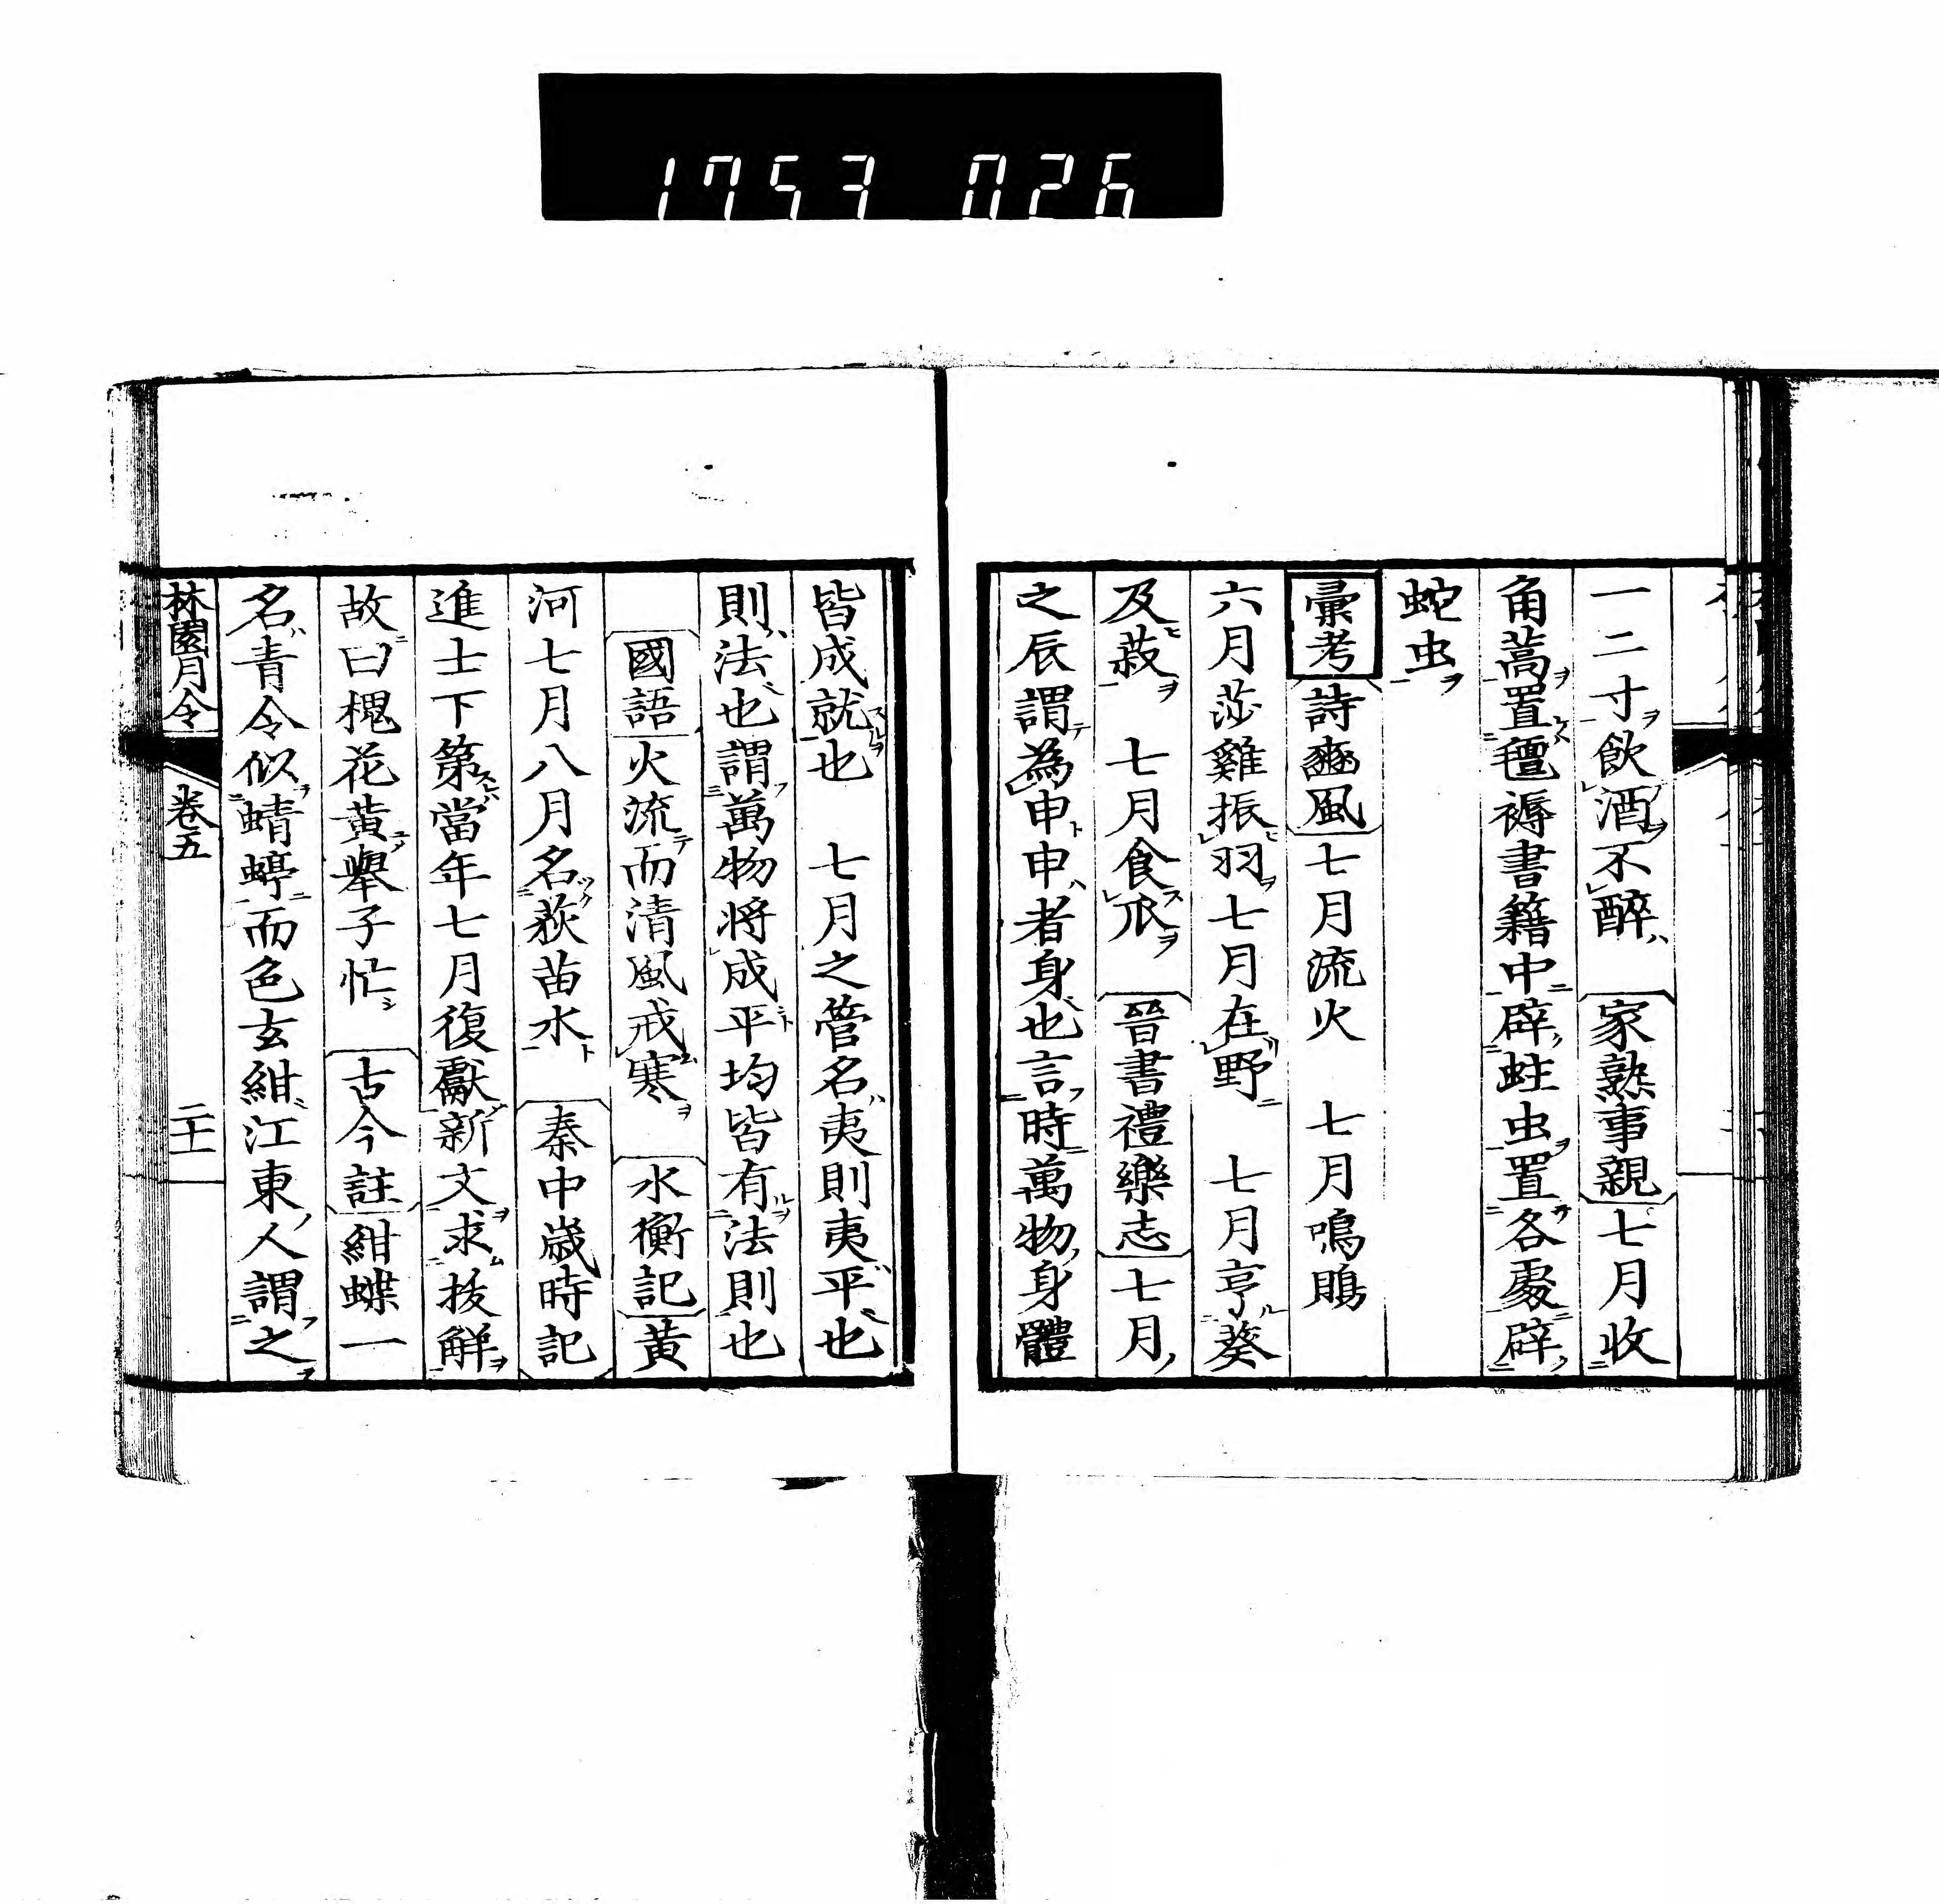 1753 026
一二寸ヲ飲酒ヲ不醉ハ 家熟事親 七月收
角蒿ヲ置氊褥書籍中ニ辟蛀虫ヲ置各處ニ辟
蛇虫ヲ
彙考 詩豳風 七月流火 七月鳴鵙
六月莎雞振羽ヲ七月在野ニ 七月亨葵
及菽ヲ 七月食瓜ヲ 晉書禮樂志 七月
之辰謂為申ト申ハ者身也言時萬物身體
皆成就也 七月之管名ハ夷則夷ハ平也
則ハ法也謂萬物將成平均皆有法則也
國語 火流テ而清風戒寒ヲ 水衡記 黄
河七月八月名荻苗水ト 秦中歳時記
進士下第當年七月復獻新文ヲ求拔解ヲ
故ニ曰槐花黄舉子忙シ 古今註 紺蝶一
名ハ青令似蜻蝏ニ而色玄紺江東人謂之ヲ
林園月令 卷五 二十一